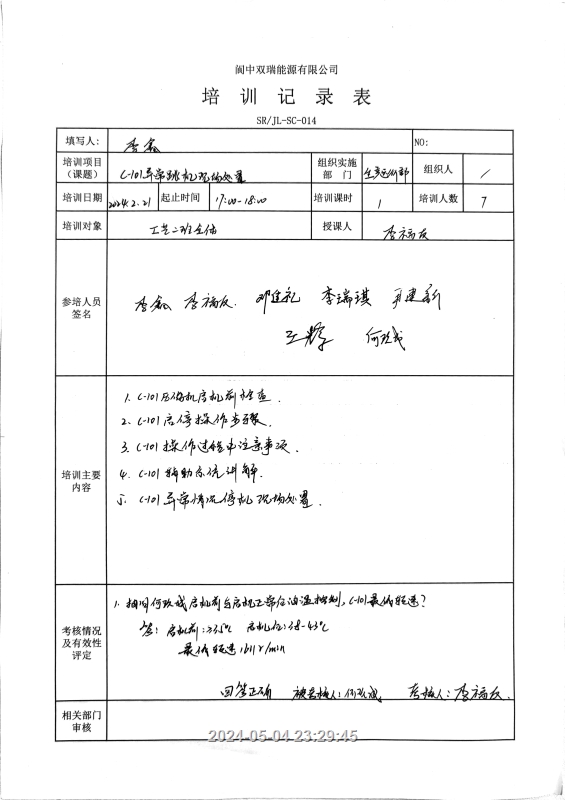 阆中双瑞能源有限公司
培 训 记 录 表
SR/JL-SC-014
填写人: 李鑫 NO:
培训项目（课题） C-101异常跳机现场处置 组织实施部 门 生产运行部 组织人 /
培训日期 2024.2.21 起止时间 17:00-18:00 培训课时 1 培训人数 7
培训对象 工艺二班全体 授课人 李福友
参培人员签名
李鑫 李福友 邓建礼 李瑞琪
王 何
培训主要内容
1. C-101压缩机启机前检查.
2. C-101启停操作步骤.
3. C-101操作过程中注意事项.
4. C-101辅助系统讲解.
5. C-101异常情况停机现场处置.
考核情况及有效性评定
1. 抽问何 启机前与启机正常后油温控制, C-101最低转速?
答: 启机前:≥35℃ 启机后:38-43℃
最低转速:1611r/min
回答正确 被考核人:何 考核人:李福友.
相关部门审核
2024-05-04 23:29:45